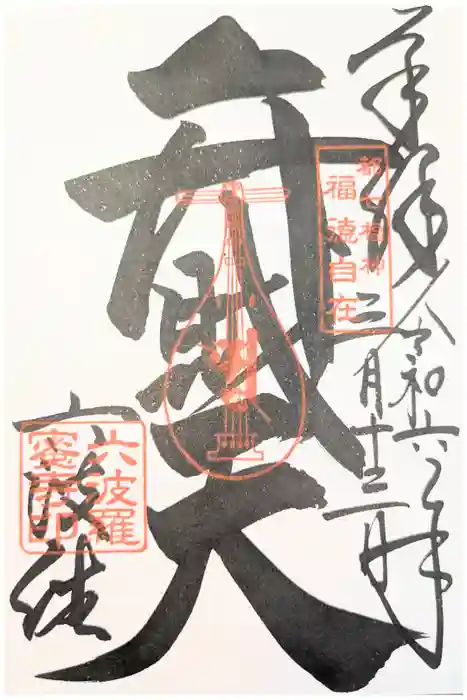 奉拝
令和六年
二月十三日
都七福神
福徳自在
弁財天
六波羅
六波羅
蜜寺印